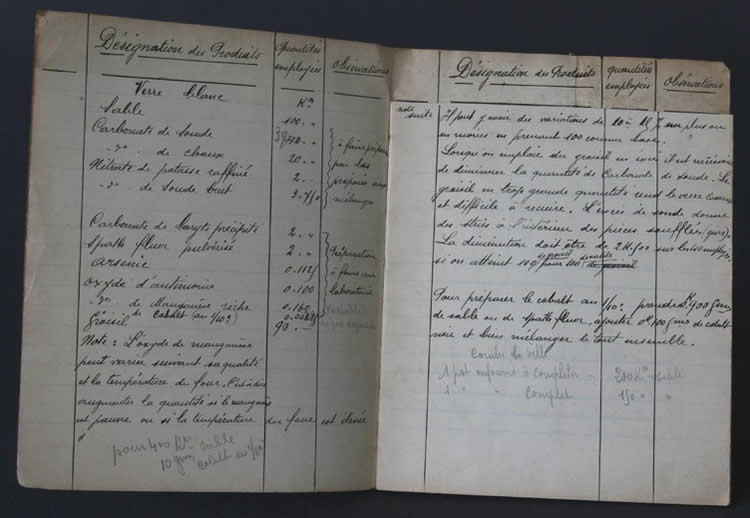 Désignation des Produits quantités employées Observations
Verre blanc Kos
Sable 100 "
Carbonate de soude
-d°- de chaux 20 "
Nitrate de potasse raffiné 2 "
-d°- de soude brut
Carbonate de baryte précipité 2 "
Spath fluor pulvérisé 2 "
Arsenic 0.112
Oxyde d'antimoine 0.100
-d°- de Manganèse riche 0.160
-d°- de Cobalt (au 1/10e)
Groisil 90 "
à faire préparer
par bas
mélanges
Préparation
à faire au
laboratoire
Note : L'oxyde de manganèse
peut varier suivant sa qualité
et la température du four. C'est à dire
augmenter la quantité si le manganèse
est pauvre ou si la température du four est élevée
pour 400 Kos sable
10 gms cobalt au 1/10
Désignation des Produits quantités employées Observations
note suite
Il peut y avoir des variations de en plus ou
en moins en prenant 100 comme base.
Lorsqu'on emploie du groisil en excès il est nécessaire
de diminuer la quantité de Carbonate de soude. Le
groisil en trop grande quantité rend le verre cassant
et difficile à recuire. L'excès de soude donne
des stries à l'intérieur des pièces soufflées (givre).
La diminution doit être de
si on atteint groisil pour 100 de sable
Pour préparer le cobalt au 1/10e prendre 0K900 gms
de sable ou de spath fluor, ajouter 0K100 gms de cobalt
noir et bien mélanger le tout ensemble.
1 pot à compléter 200 Kos sable
1 " " Complet 150 " "